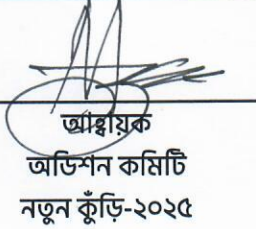 আহ্বায়ক
অডিশন কমিটি
নতুন কুঁড়ি-২০২৫